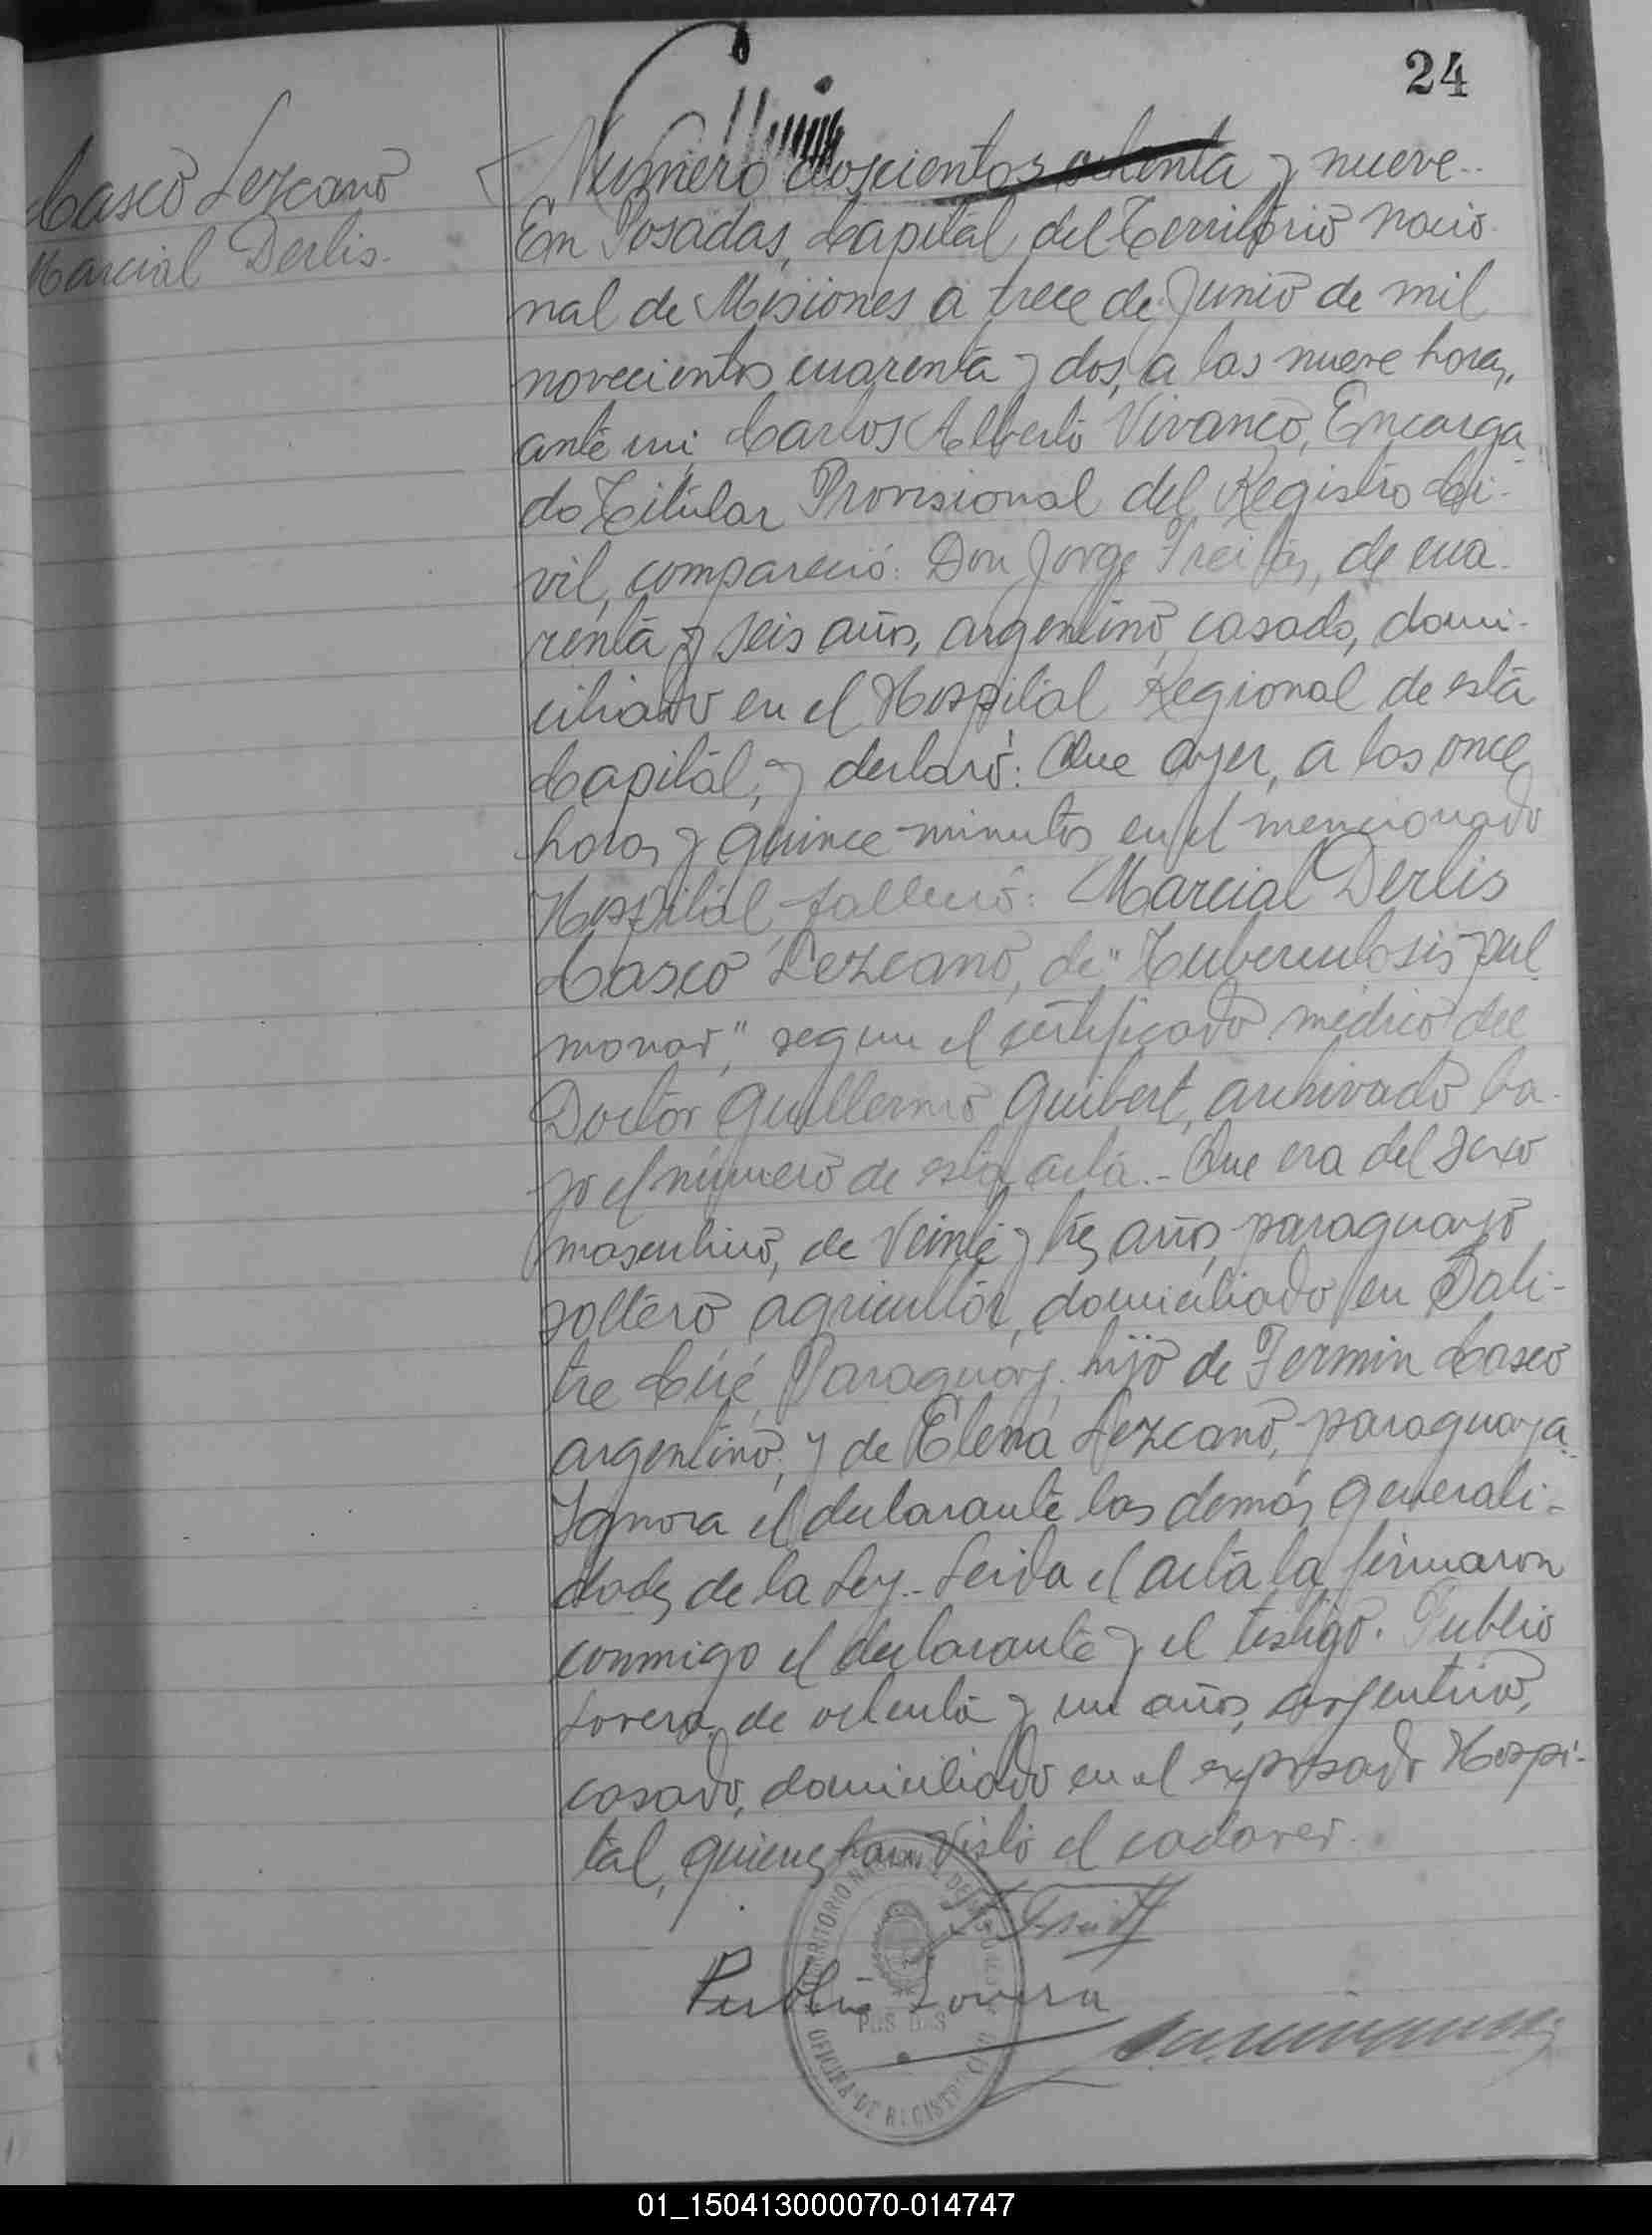 24
Casco Lezcano
Marcial Derlis.
Numero doscientos ochenta y nueve..
En Posadas, Capital del Territorio nacio
nal de Misiones a trece de Junio de mil
novecientos cuarenta y dos, a las nueve horas,
ante mi Carlos Alberto Vivanco, Encarga
do Titular Provisional del Registro Ci-
vil, compareció: Don Jorge Freitas, de cua.
renta y seis años, argentino, casado, domi-
ciliado en el Hospital Regional de esta
Capital, y declaró: Que ayer, a las once
horas y quince minutos en el mencionado
Hospital, falleció: Marcial Derlis
Casco Lezcano, de "Tuberculosis pul
monar," segun el certificado médico del
Doctor Guillermo Guibert, archivado ba-
jo el número de esta acta.- Que era del sexo
masculino, de veinte y tres años, paraguayo
soltero, agricultor, domiciliado en Sali-
tre Cué, Paraguay, hijo de Fermin Casco
argentino, y de Elena Lezcano, paraguaya.
Ignora el declarante las demás generali-
dades de la Ley.- Leida el acta la firmaron
conmigo el declarante y el testigo. Publio
Lovera, de ochenta y un años, argentino,
casado, domiciliado en el expresado Hospi-
tal, quienes han visto el cadaver.
Publio Lovera
TERRITORIO NACIONAL DE MISIONES
POSADAS
OFICINA DE REGISTRO
01_150413000070-014747